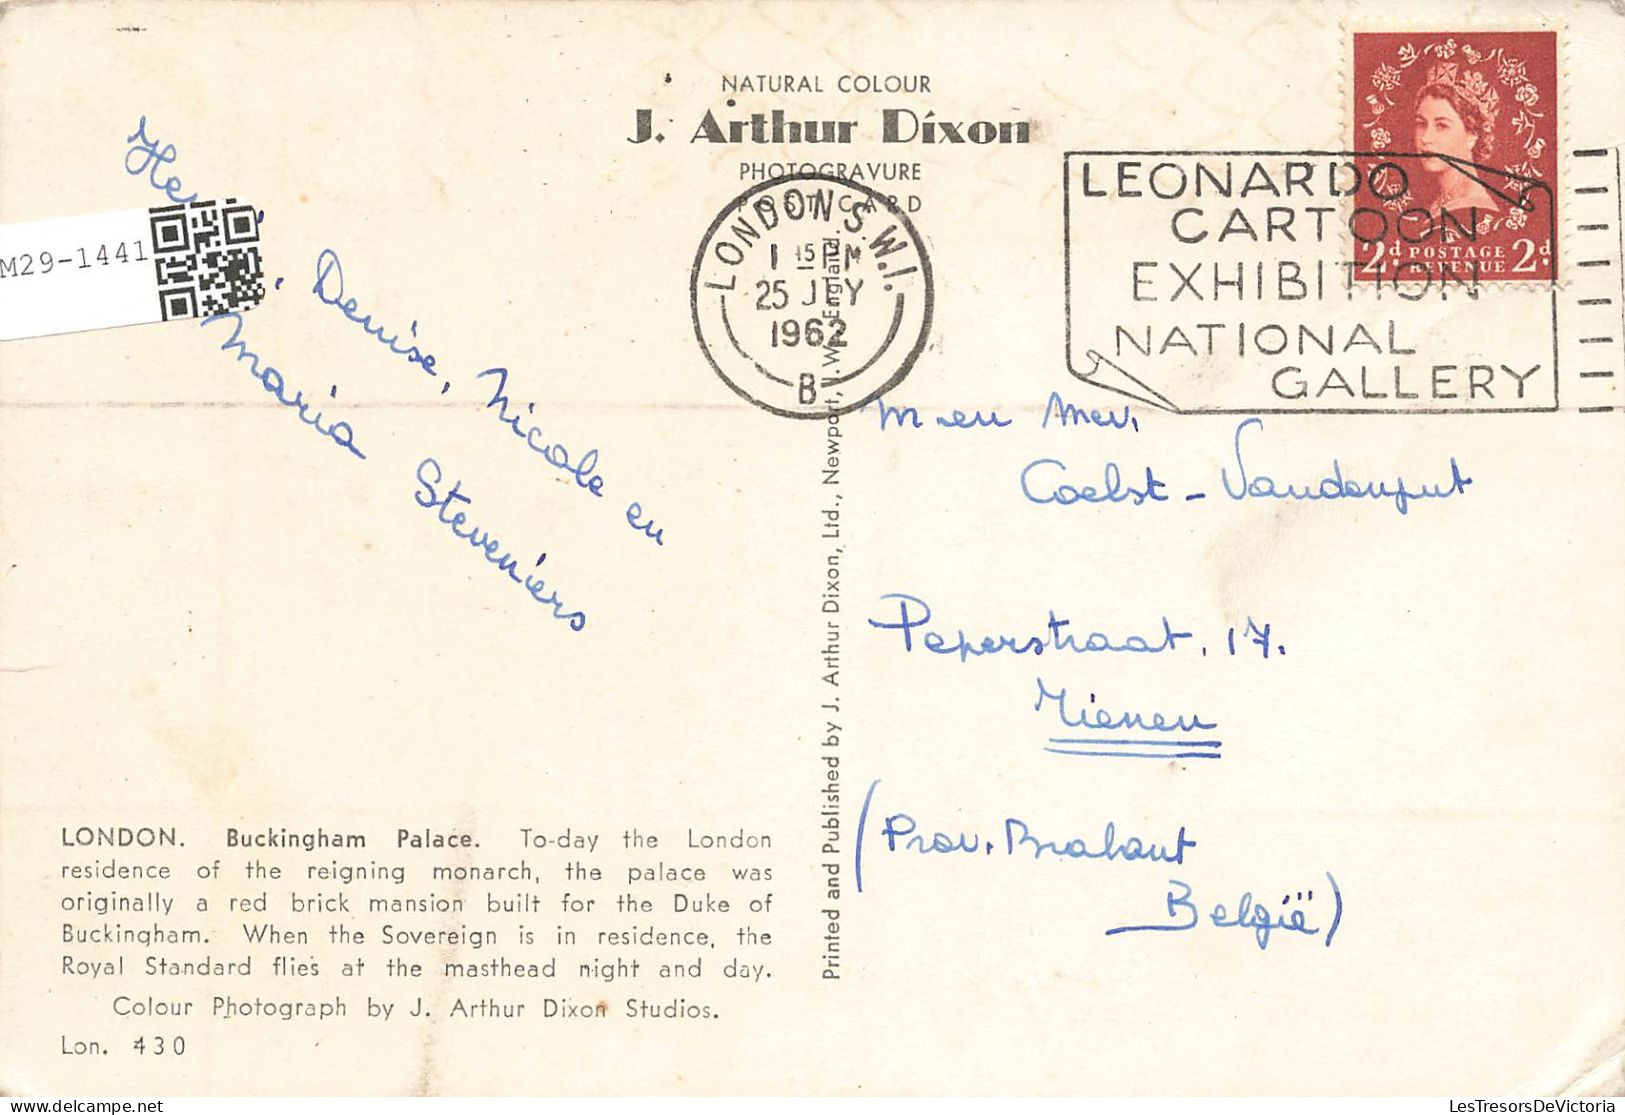 NATURAL COLOUR
J. Arthur Dixon
PHOTOGRAVURE
POST CARD
LONDON S.W.1.
1 15 PM
25 JLY
1962
B
LEONARDO
CARTOON
EXHIBITION
NATIONAL
GALLERY
2d POSTAGE 2d
REVENUE
M29-1441
Denise, Nicole en
Maria Steveniers
M en Mev.
Coelst - Vandenput
Peperstraat, 17.
Tienen
(Prov. Brabant
België)
Printed and Published by J. Arthur Dixon, Ltd., Newport, I.W., England.
LONDON. Buckingham Palace. To-day the London
residence of the reigning monarch, the palace was
originally a red brick mansion built for the Duke of
Buckingham. When the Sovereign is in residence, the
Royal Standard flies at the masthead night and day.
Colour Photograph by J. Arthur Dixon Studios.
Lon. 430
LesTresorsDeVictoria